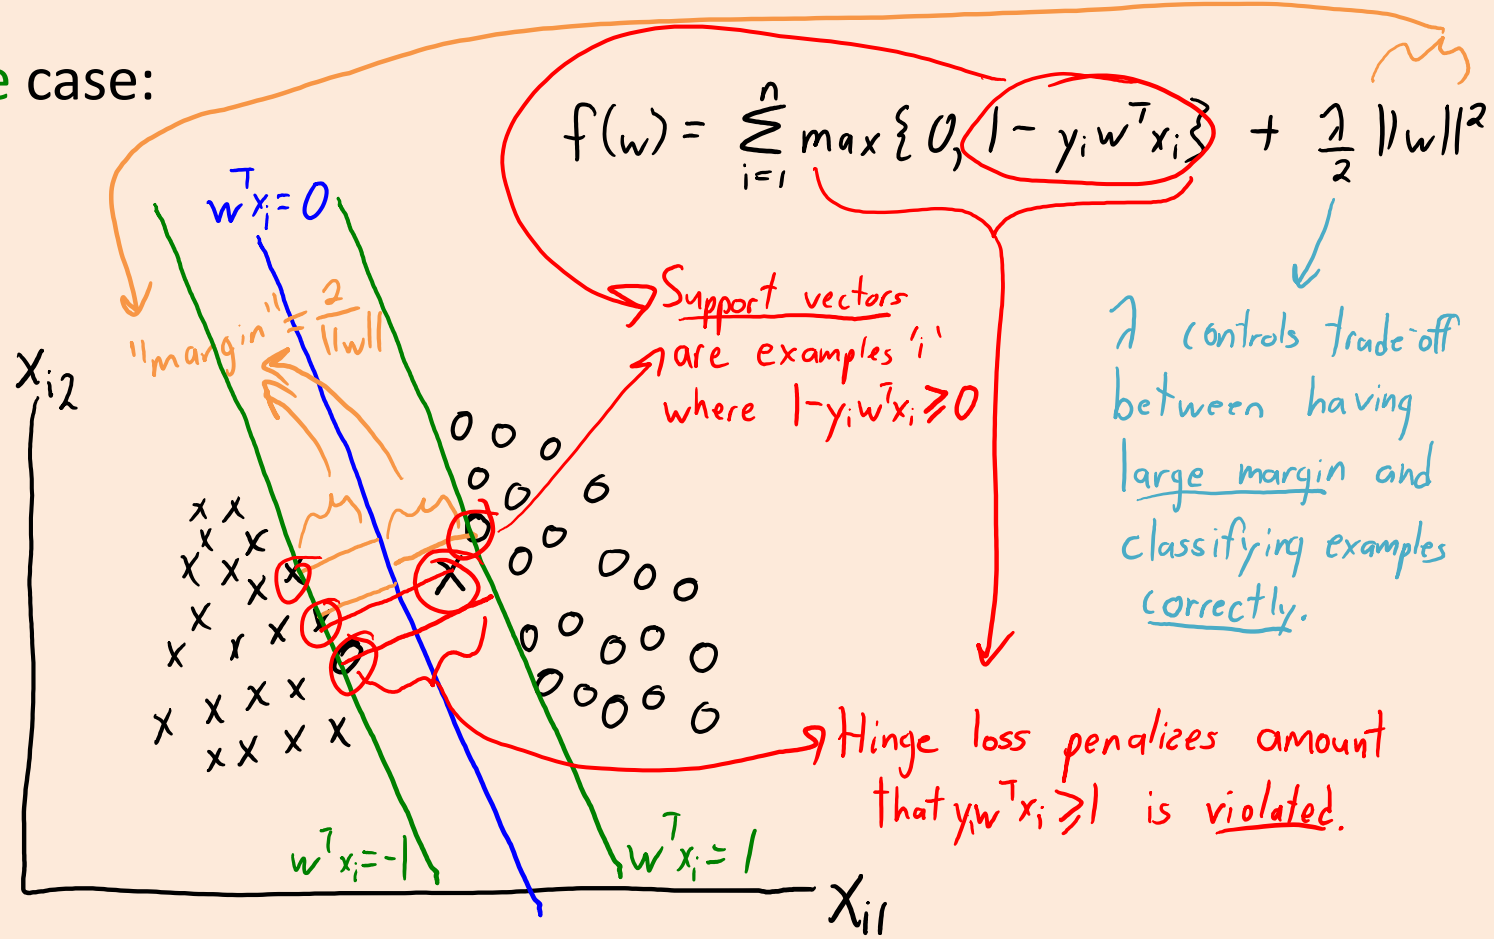 e case:
f(w) = Σ_{i=1}^{n} max{0, 1 - yᵢwᵀxᵢ} + λ/2 ||w||²
wᵀxᵢ = 0
"margin" = 2/||w||
Support vectors
are examples 'i'
where 1-yᵢwᵀxᵢ ⩾ 0
λ controls trade-off
between having
large margin and
classifying examples
correctly.
Xᵢ₂
Hinge loss penalizes amount
that yᵢwᵀxᵢ ⩾ 1 is violated.
wᵀxᵢ = -1
wᵀxᵢ = 1
Xᵢ₁